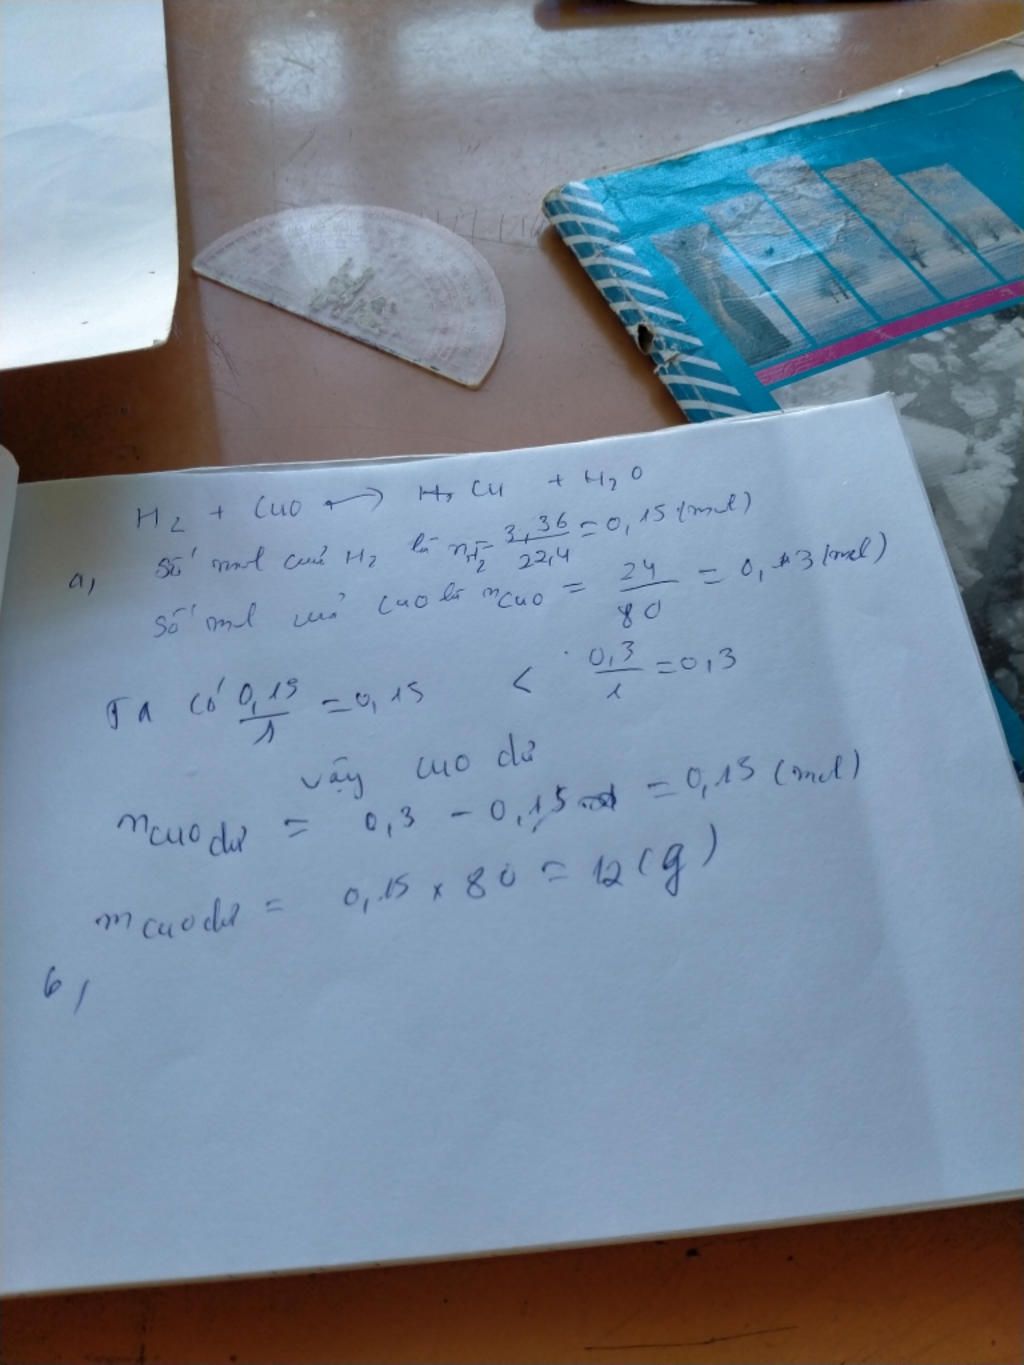 H₂ + CuO ⟶ Cu + H₂O
a, Số mol của H₂ là nH₂ = 3,36/22,4 = 0,15 (mol)
Số mol của CuO là nCuO = 24/80 = 0,3 (mol)
Ta có 0,15/1 = 0,15 < 0,3/1 = 0,3
Vậy CuO dư
nCuO dư = 0,3 - 0,15 = 0,15 (mol)
mCuO dư = 0,15 x 80 = 12 (g)
b,